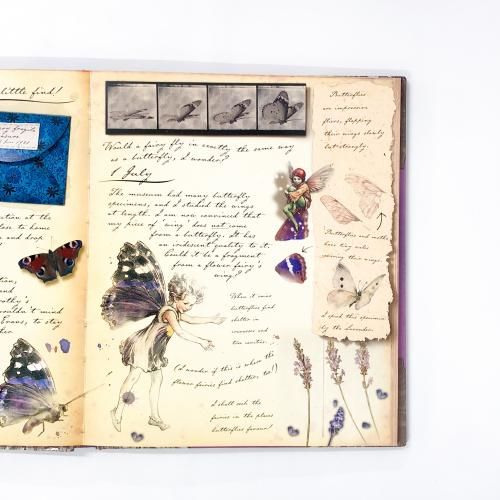 little find!
ction at the
close to home
and drop
and
othy's
wouldn't mind
Evans, to stay
her.
Would a fairy fly in exactly the same way
as a butterfly, I wonder?
1 July
The museum had many butterfly
specimens, and I studied the wings
at length. I am now convinced that
my piece of 'wing' does not come
from a butterfly. It has
an iridescent quality to it.
Could it be a fragment
from a flower fairy's
wing?
When it rains
butterflies find
shelter in
crevasses and
tree cavities.
(I wonder if this is where the
flower fairies find shelter too!)
I shall seek the
fairies in the places
butterflies favour!
Butterflies
are impressive
fliers, flapping
their wings slowly
but strongly.
Butterflies and moths
have tiny scales
covering their wings.
I spied this specimen
by the lavender.